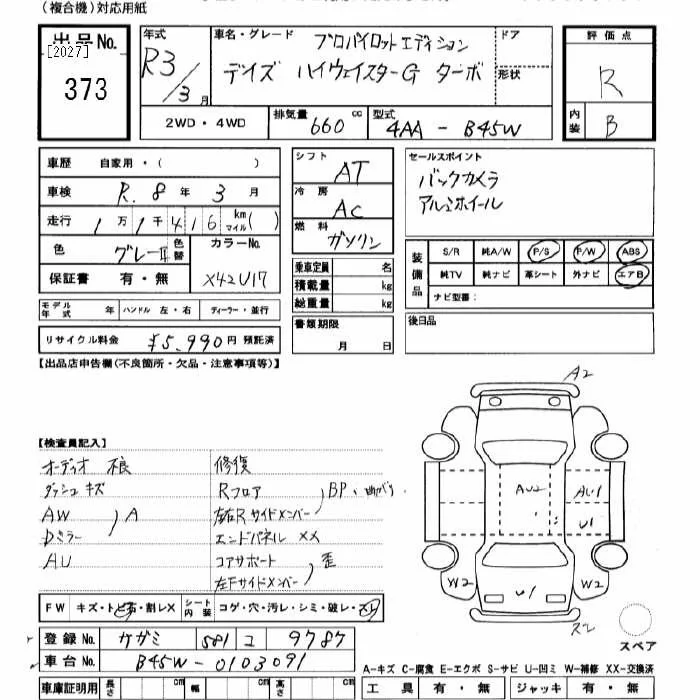 (複合機)対応用紙
出品No.
[2027]
373
年式
R3/3月
車名・グレード
プロパイロットエディション
デイズ ハイウェイスターG ターボ
ドア
形状
評価点
R
内装
B
2WD・4WD
排気量 660 cc
型式 4AA - B45W
車歴 自家用・( )
車検 R.8年 3月
走行 1万1千416 km マイル( )
色 グレーII 色替
カラーNo. X42U17
保証書 有・無
シフト AT
冷房 AC
燃料 ガソリン
乗車定員 名
積載量 kg
総重量 kg
書類期限
月 日
セールスポイント
バックカメラ
アルミホイール
装備品
S/R 純A/W P/S P/W ABS
純TV 純ナビ 革シート 外ナビ エアB
ナビ型番:
後日品
モデル年式 年 ハンドル 左・右 ディーラー・並行
リサイクル料金 ¥5,990円 預託済
【出品店申告欄(不良箇所・欠品・注意事項等)】
【検査員記入】
オーディオ 不良
ダッシュキズ
AW
Dミラー
A
AU
修復
Rフロア
左右Rサイドメンバー
BP・曲がり
エンドパネル XX
コアサポート
左Fサイドメンバー
歪
A2
AU2
AU1
U1
W2
U1
W2
スペア
FW キズ・トビ石・割レX
シート内装 コゲ・穴・汚レ・シミ・破レ・スレ
登録No. 581 コ 9787
車台No. B45W-0103091
車庫証明用 長さ cm 幅 cm 高さ cm
A-キズ C-腐食 E-エクボ S-サビ U-凹ミ W-補修 XX-交換済
工具 有・無 ジャッキ 有・無